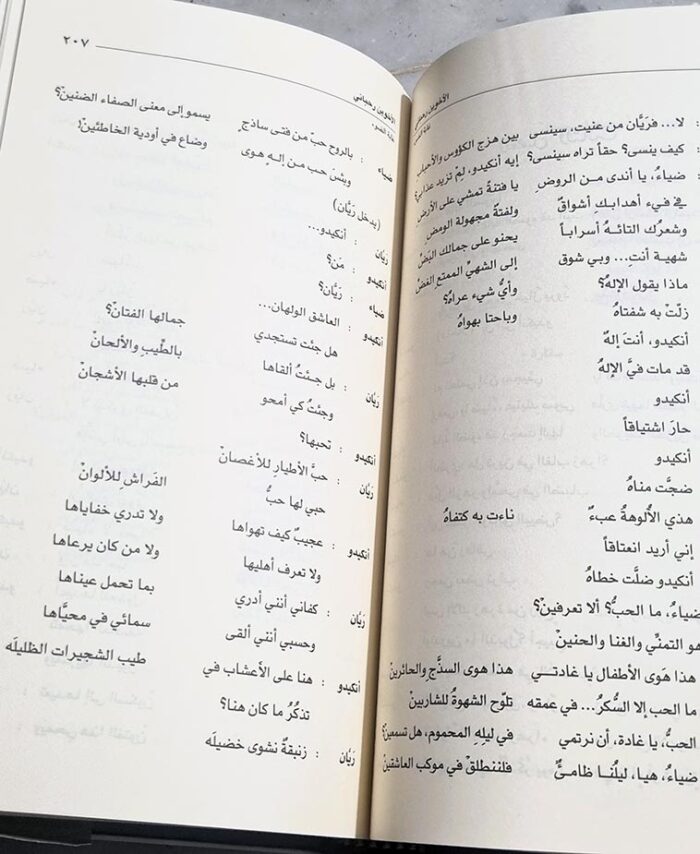 الأخوين رحباني
: لا... فريَّان من عنيت، سينسى بين هزج الكؤوس والأحباب
: كيف ينسى؟ حقاً تراه سينسى؟ إيه أنكيدو، لمْ تزيد عذابي؟
: ضياءُ، يا أندى مـن الروض يا فتنةً تمشي على الأرض
في فيء أهدابـكِ أشواقٌ ولفتةٌ مجهولة الومض
وشعرُك التائـهُ أسراباً يحنو على جمالك البَضِّ
شهية أنتِ... وبي شوق إلى الشهيِّ الممتع الغضِّ
ماذا يقول الإلهُ؟ وأيُّ شيء عراهُ؟
زلّتْ به شفتاهُ وباحتا بهواهُ
أنكيدو، أنتَ إلهٌ
قد مات فيَّ الإلهُ
أنكيدو
حارَ اشتياقاً
أنكيدو
ضجَّت مناهُ
هذي الأُلوهةُ عبءٌ ناءت به كتفاهُ
إني أريد انعتاقاً
أنكيدو ضلَّت خطاهُ
ضياءُ، ما الحبُّ؟ ألا تعرفين؟
هو التمنِّي والغنا والحنينْ
هذا هَوَى الأطفال يا غادتـي هذا هوى السذَّج والحائرينْ
ما الحب إلا السُّكرُ... في عمقه تلوّح الشهوةُ للشاربينْ
الحبُّ، يا غادة، أن نرتمي في ليلِهِ المحموم، هل تسمعينْ؟
ضياءُ، هيا، ليلُنـا ظامـئٌ فلننطلقْ في موكب العاشقينْ
الأخوين رحباني
٢٠٧
ضياء : بالروح حبّ من فتى ساذجٍ يسمو إلى معنى الصفاء الضنينْ؟
وبئسَ حب مـن إلـهٍ هوى وضاع في أودية الخاطئينْ!
(يدخل ريَّان)
ريَّان : أنكيدو...
أنكيدو : مَن؟
ضياء : ريَّان؟
أنكيدو : العاشق الولهان...
هل جئت تستجدي جمالها الفتانْ؟
ريَّان : بل جئتُ ألقاها بالطِّيبِ والألحانْ
وجئتُ كي أمحو من قلبها الأشجانْ
أنكيدو : تحبها؟
ريَّان : حبَّ الأطيار للأغصانْ
حبي لها حبُّ الفَراشِ للألوانْ
أنكيدو : عجيبٌ كيف تهواها ولا تدري خفاياها
ولا تعرف أهليها ولا من كان يرعاها
ريَّان : كفاني أنني أدري بما تحمل عيناها
وحسبي أنني ألقى سمائي في محيَّاها
أنكيدو : هنا على الأعشاب في طيب الشجيرات الظليلَه
تذكُرُ ما كان هنا؟
ريَّان : زنبقةٌ نشوى خضيلَه